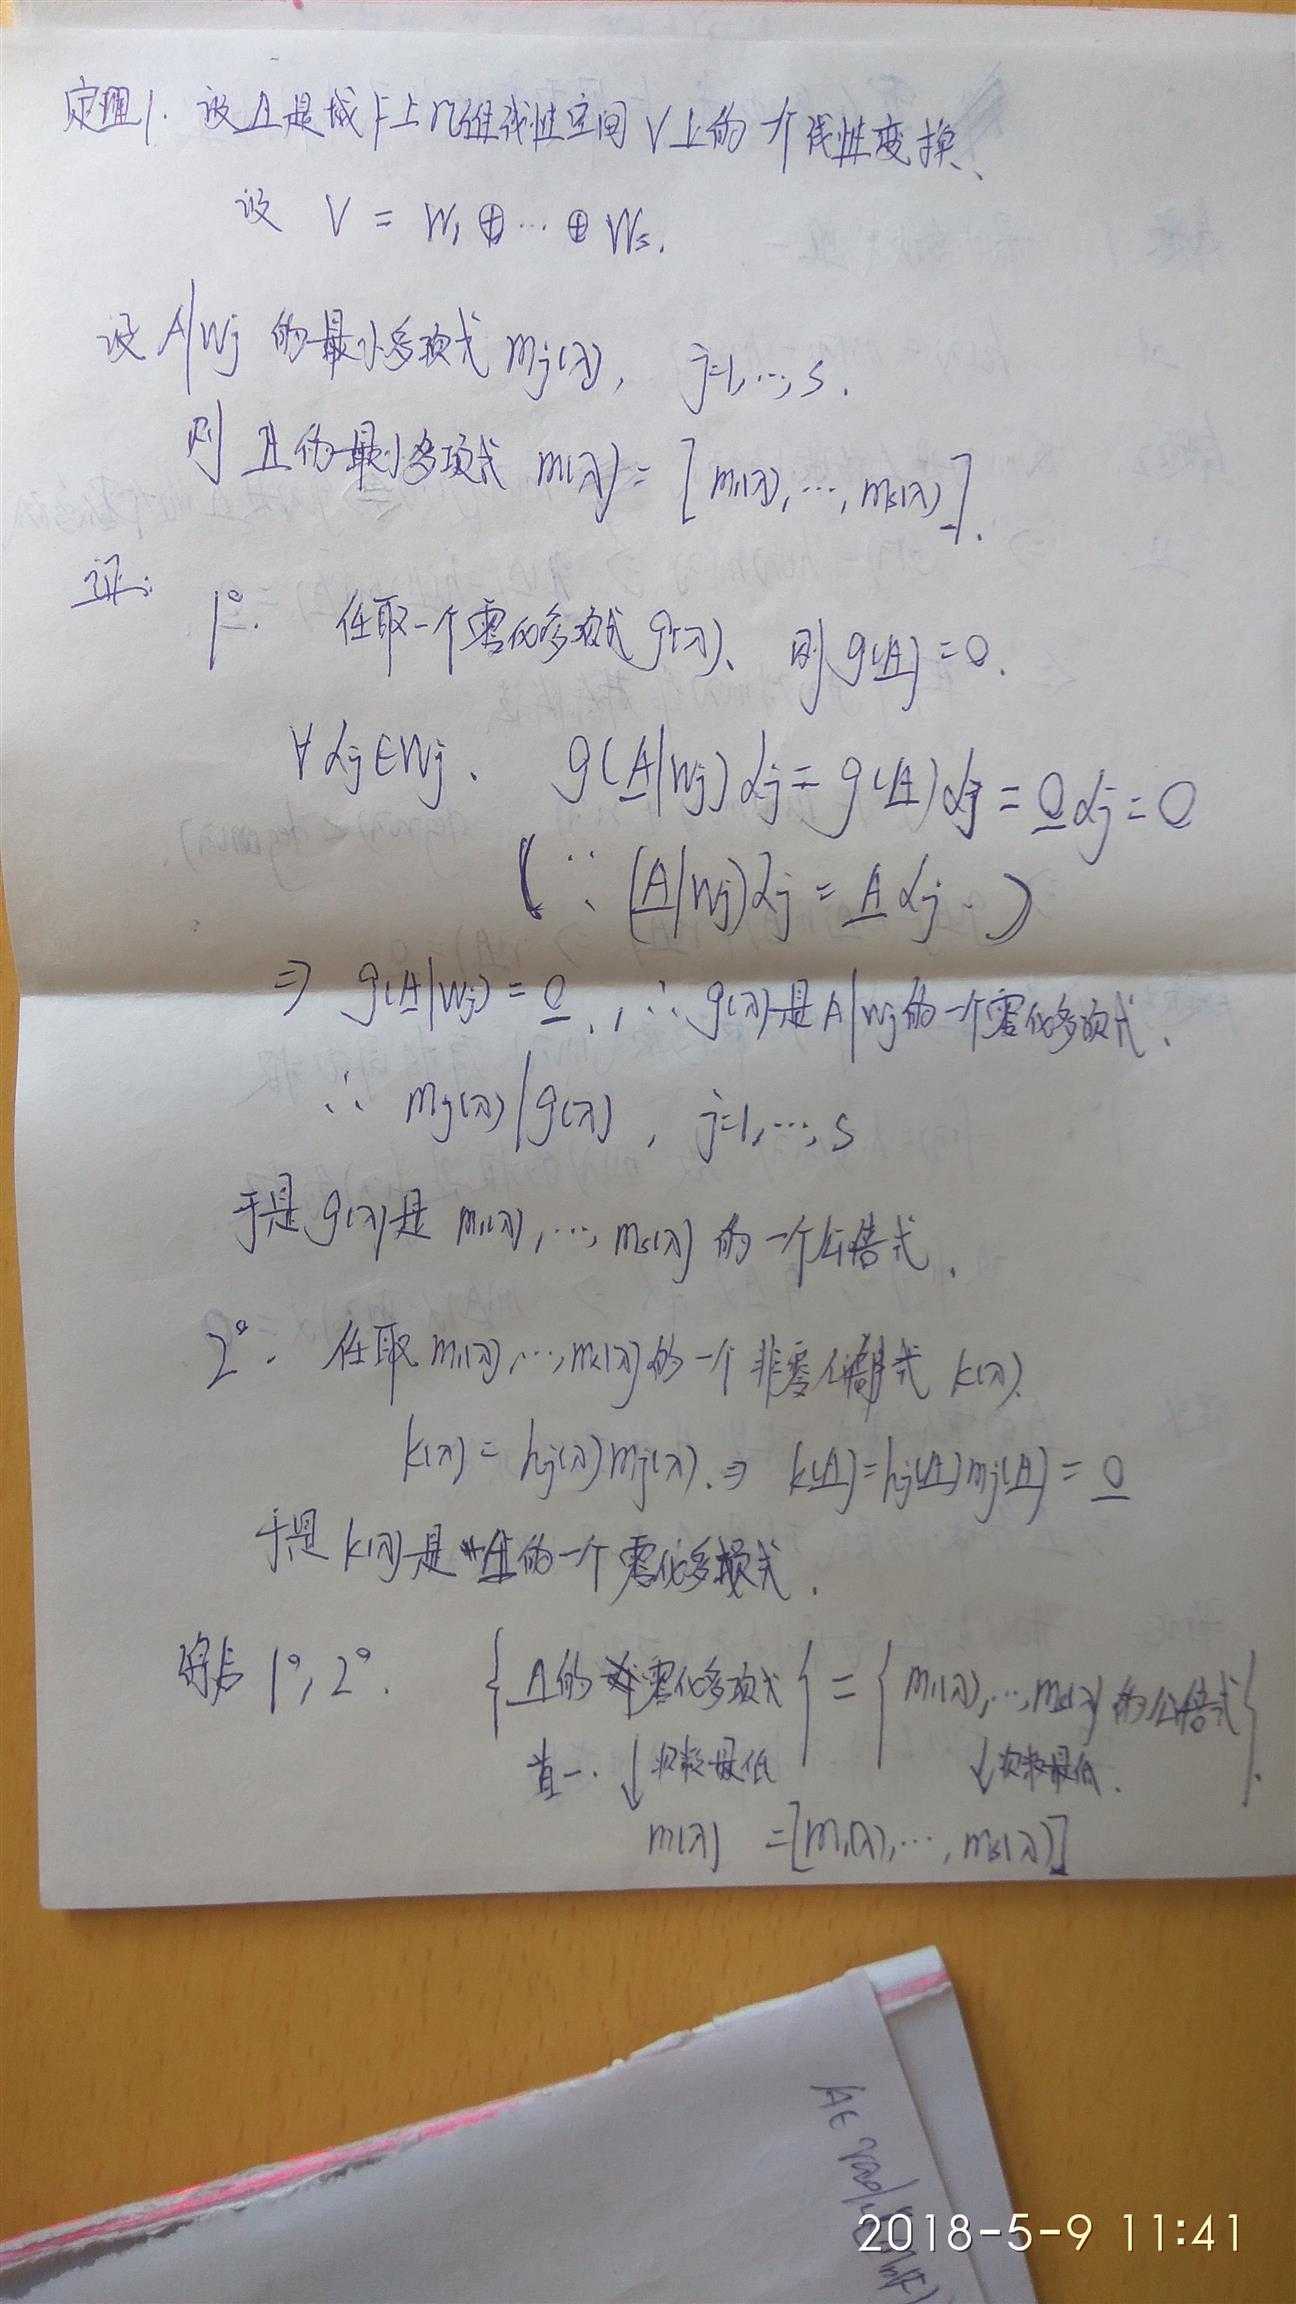 定理1. 设A是域F上n维线性空间V上的一个线性变换、
设 V = W₁⊕…⊕Ws.
设A|Wj 的最小多项式 mj(λ), j=1,…,s.
则 A的最小多项式 m(λ) = [m₁(λ),…,ms(λ)].
证:
1°. 任取一个零化多项式g(λ)、 则g(A)=0.
∀αj∈Wj. g(A|Wj)αj = g(A)αj = 0αj = 0
(∵ (A|Wj)αj = Aαj.)
⇒ g(A|Wj) = 0., ∴ g(λ)是A|Wj的一个零化多项式.
∴ mj(λ)|g(λ), j=1,…,s
于是g(λ)是 m₁(λ),…,ms(λ) 的一个公倍式.
2°. 任取m₁(λ),…,ms(λ)的一个非零公倍式 k(λ).
k(λ) = hj(λ)mj(λ).⇒ k(A)=hj(A)mj(A) = 0
于是k(λ)是A的一个零化多项式.
1°, 2°. {A的零化多项式} = {m₁(λ),…,ms(λ)的公倍式}.
首一. ↓次数最低 ↓次数最低.
m(λ) =[m₁(λ),…,ms(λ)]
A∈
2018-5-9 11:41